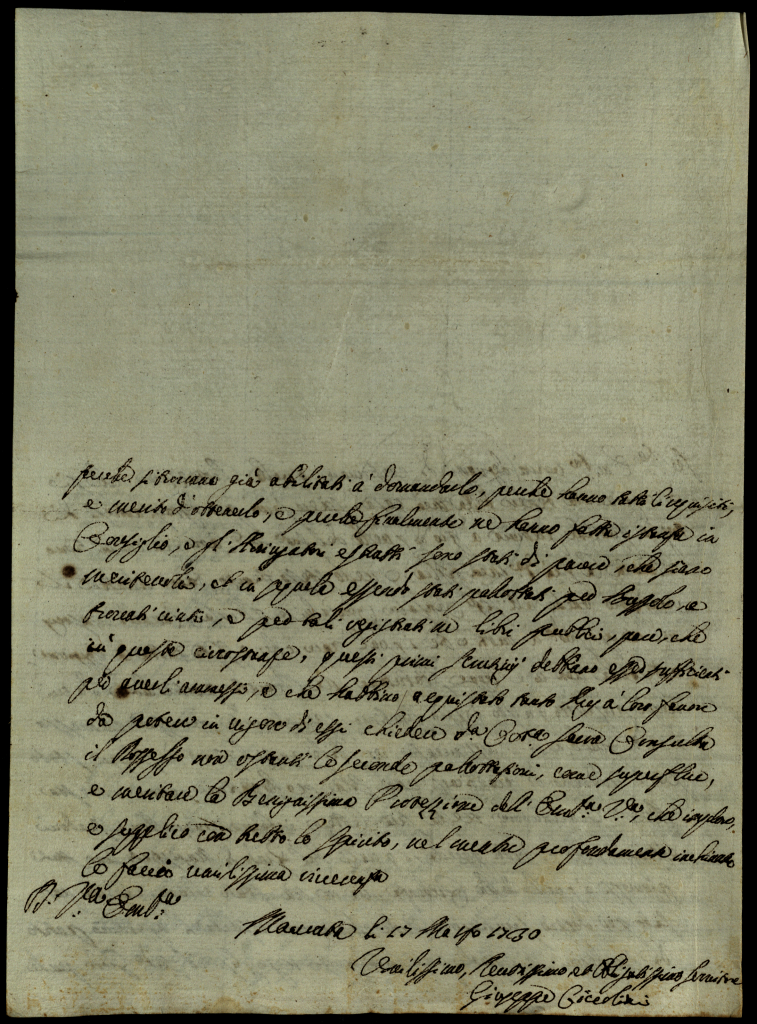 perche si trovano già abilitati à domandarlo, perche hanno tutti li requisiti,
e merito d'ottenerlo, e perche finalmente ne hanno fatta istanza in
Consiglio, e gl' Arringatori estratti sono stati di parere, che siano
meritevoli, et in seguela essendo stati pallottati per bussolo, e
trovati vinti, e per tali registrati ne libri publici, pare, che
in queste circostanze, questi primi scrutinij debbano esser sufficienti
per averli ammessi, e che habbino acquistato tanto Jus à loro favore
da potere in vigore di essi chiedere da Cotesta Sacra Consulta
il Possesso non ostanti le seconde pallottazioni, come superflue,
e meritare la Benignissima Protezzione dell' Emza Vra, che imploro,
e supplico con tutto lo spirito, nel mentre profondamente inchinato
le faccio umilissima riverenza
D. Vra Emza
Macerata li 17 Marzo 1730
Umilissimo, Devotissimo, et Obligatissimo Servitore
Giuseppe Ciccolini